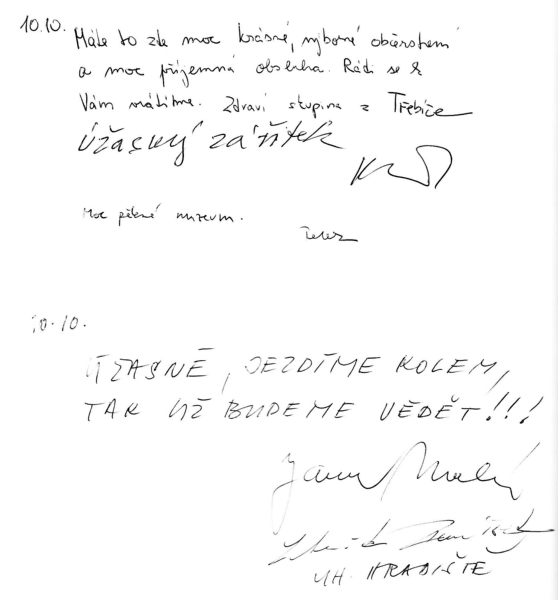 10.10. Máte to zde moc krásné, výborné občerstvení
a moc příjemná obsluha. Rádi se k
Vám vrátíme. Zdraví skupina z Třebíče
Úžasný zážitek
Moc pěkné muzeum.
10.10.
ÚŽASNĚ, JEZDÍME KOLEM,
TAK UŽ BUDEME VĚDĚT!!!
UH. HRADIŠTE